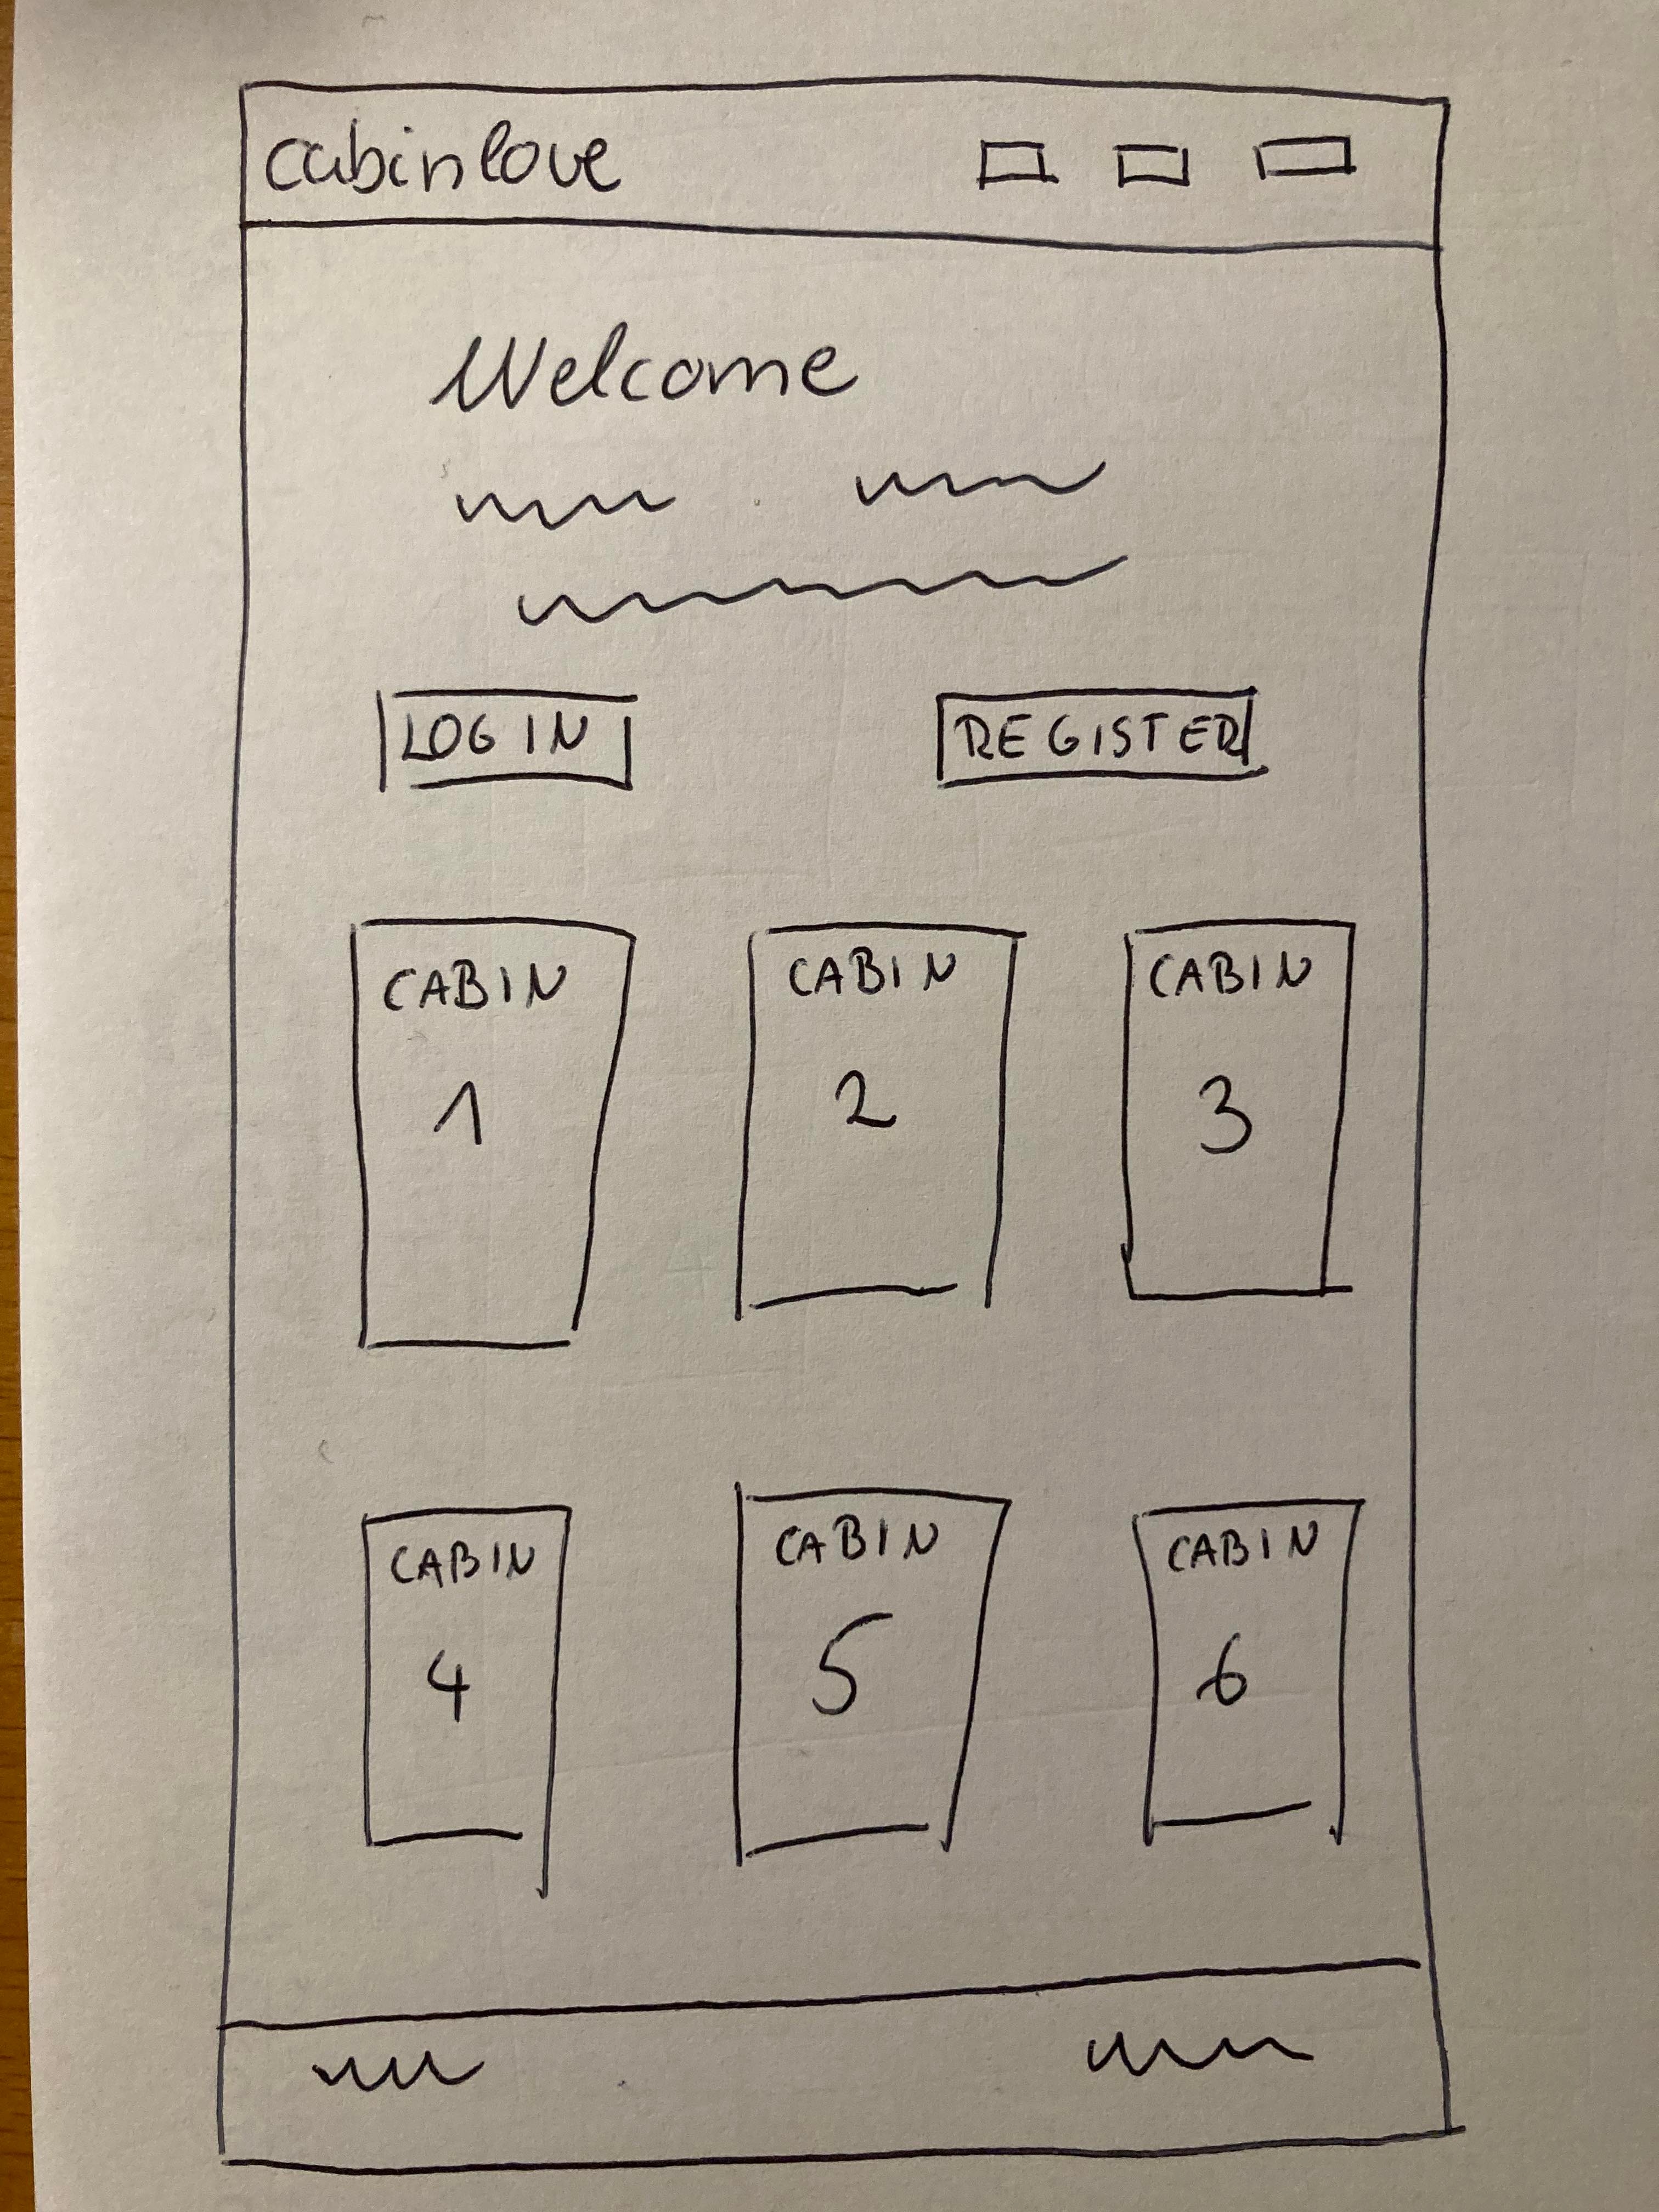 cabinlove
Welcome
LOGIN REGISTER
CABIN CABIN CABIN
1 2 3
CABIN CABIN CABIN
4 5 6